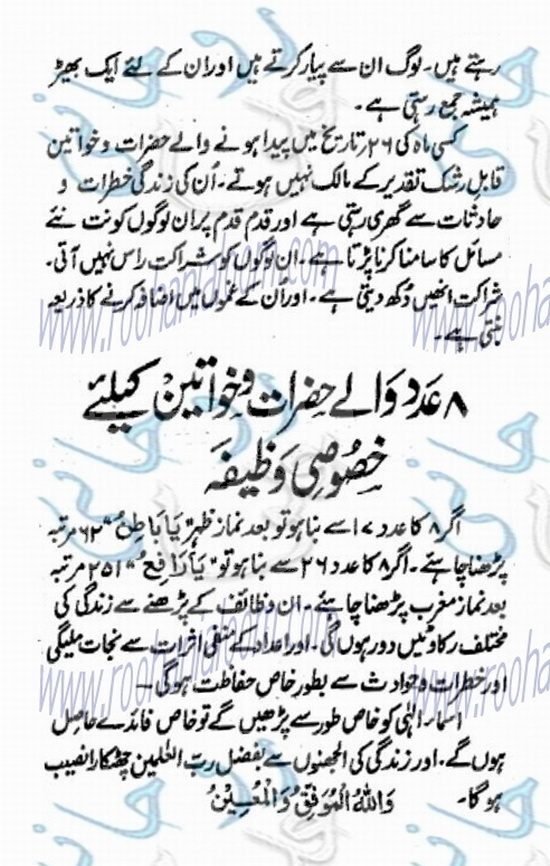 رہتے ہیں۔ لوگ ان سے پیار کرتے ہیں اور ان کے لئے ایک بھیڑ
ہمیشہ جمع رہتی ہے۔
کسی ماہ کی ۲۶ تاریخ میں پیدا ہونے والے حضرات و خواتین
قابلِ رشک تقدیر کے مالک نہیں ہوتے۔ اُن کی زندگی خطرات و
حادثات سے گھری رہتی ہے اور قدم قدم پر ان لوگوں کو نت نئے
مسائل کا سامنا کرنا پڑتا ہے۔ ان لوگوں کو شراکت راس نہیں آتی۔
شراکت انھیں دُکھ دیتی ہے۔ اور اُن کے غموں میں اضافہ کرنے کا ذریعہ
بنتی ہے۔
۸ عدد والے حضرات و خواتین کیلئے
خصُوصی وَظیفہ
اگر ۸ کا عدد ۱۷ سے بنا ہو تو بعد نماز ظہر "یَا بَاطِنُ" ۶۲ مرتبہ
پڑھنا چاہئے۔ اگر ۸ کا عدد ۲۶ سے بنا ہو تو "یَا رَافِعُ" ۲۵۱ مرتبہ
بعد نماز مغرب پڑھنا چاہئے۔ ان وظائف کے پڑھنے سے زندگی کی
مختلف رکاوٹیں دور ہوں گی۔ اور اعداد کے منفی اثرات سے نجات ملیگی
اور خطرات و حوادث سے بطور خاص حفاظت ہوگی۔
اسماء الٰہی کو خاص طور سے پڑھیں گے تو خاص فائدے حاصل
ہوں گے۔ اور زندگی کی الجھنوں سے بفضل ربّ العٰلمین چھٹکارا نصیب
ہو گا۔ وَاللهُ الْمُوَفِّقُ وَالْمُعِیْنُ